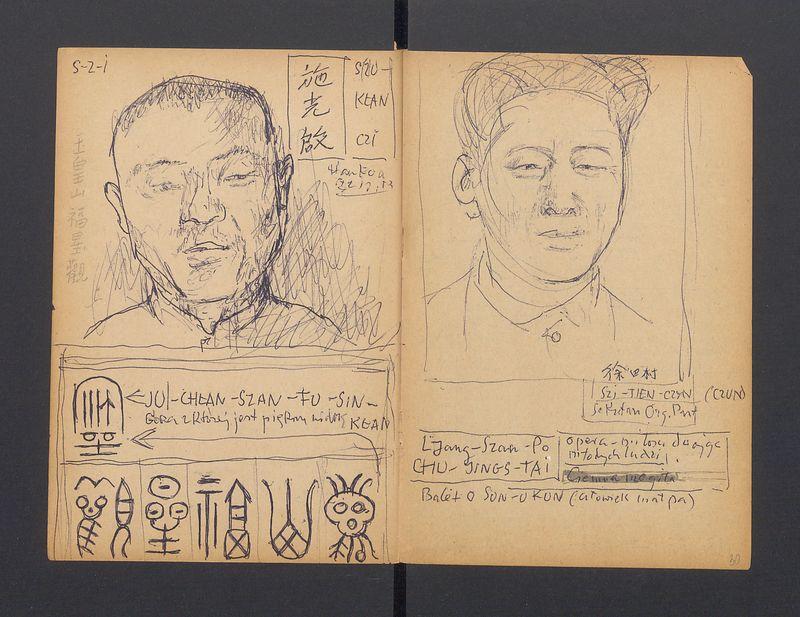 S-2-1
施光啟
SZU-
KEAN
CZI
Hankou
玉皇山福星觀
JUI-CHEAN-SZAN-FU-SIN-
Góra z której jest piękny widok KEAN
徐田村
SZI-TIEN-CZYN (CZUN)
Sekretarz Org. Part
LJANG-SZAN-PO
CHU-JINGS-TAI
opera-miłosna dwojga
młodych ludzi
Balet o SUN-U KUN (człowiek małpa)
30